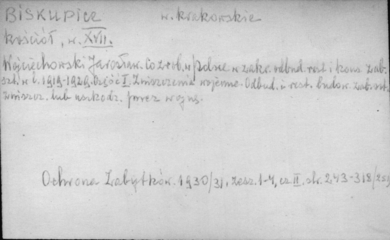 BISKUPICE w. krakowskie
kościół, w. XVII.
Wojciechowski Jarosław. Co zrob. w Polsce w zakr. odbud. rest. i kons. zab.
szt. w l. 1919-1929. Część I. Zniszczenia wojenne. Odbud. i rest. budow. zab. szt.
zniszcz. lub uszkodz. przez wojnę.
Ochrona Zabytków. 1930/31, zesz. 1-4, cz. II. str. 243-318/259